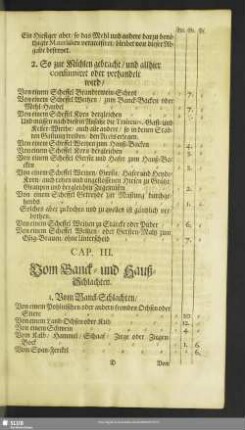 Thl. Gr. Pf.
Ein Hiesiger aber so das Mehl und andere darzu benö-
thigte Materialien versteuret, bleibet von dieser Ab-
gabe befreyet.
2. So zur Mühlen gebracht, und allhier
consumiret oder verhandelt
wird,
Von einem Scheffel Brandtwein-Schrot 7.
Von einem Scheffel Weitzen, zum Banck-Backen oder
Mehl-Handel 7.
Von einem Scheffel Korn dergleichen
Und müssen nach dieser
Keller-Wirthe, auch alle andere, so in denen Städ-
ten Gastung treiben, den
Von einem Scheffel Weitzen zum Hauß-Backen 4.
Von einem Scheffel Korn dergleichen
Von einem Scheffel Gerste und Hafer zum Hauß-Ba-
cken
Von einem Scheffel Weitzen, Gerste, Hafer und Heyde-
Korn, auch rohen und ungestossenen Hirsen zu Grütz,
Graupen und dergleichen Zugemüsen 2.
Von einem Scheffel Getreyde zur Mastung durchge-
hends 1.
Solches aber zu kochen und zu quellen ist gäntzlich ver-
bothen.
Von einem Scheffel Weitzen zu Stärcke oder Puder 6.
Von einem Scheffel Weitzen- oder Gersten-Maltz zum
Eßig-Brauen, ohne Unterscheid
CAP. III.
Vom Banck- und Hauß-
Schlachten.
1. Vom Banck-Schlachten,
Von einem Pohlnischen oder andern frembden Ochsen oder
Stiere 20
Von einem Land-Ochsen oder Kuh 12.
Von einem Schwein 4.
Vom Kalb, Hammel, Schaaf, Ziege oder Ziegen-
Bock 1. 6.
Von Span-Ferckel 1. 6.
D
Von
SLUB